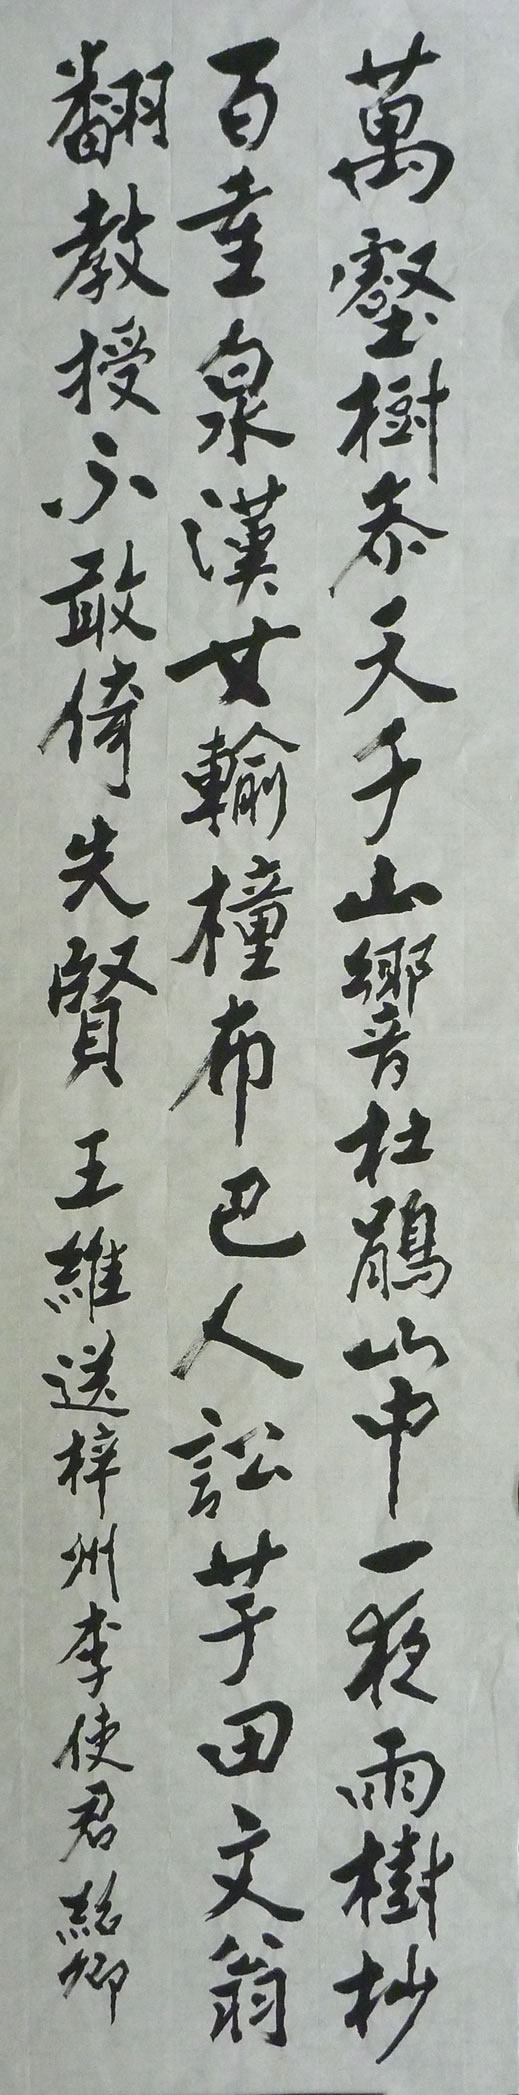 萬壑樹参天千山響杜鵑山中一夜雨樹杪
百重泉漢女輸橦布巴人訟芋田文翁
翻教授不敢倚先賢 王維送梓州李使君 紹卿